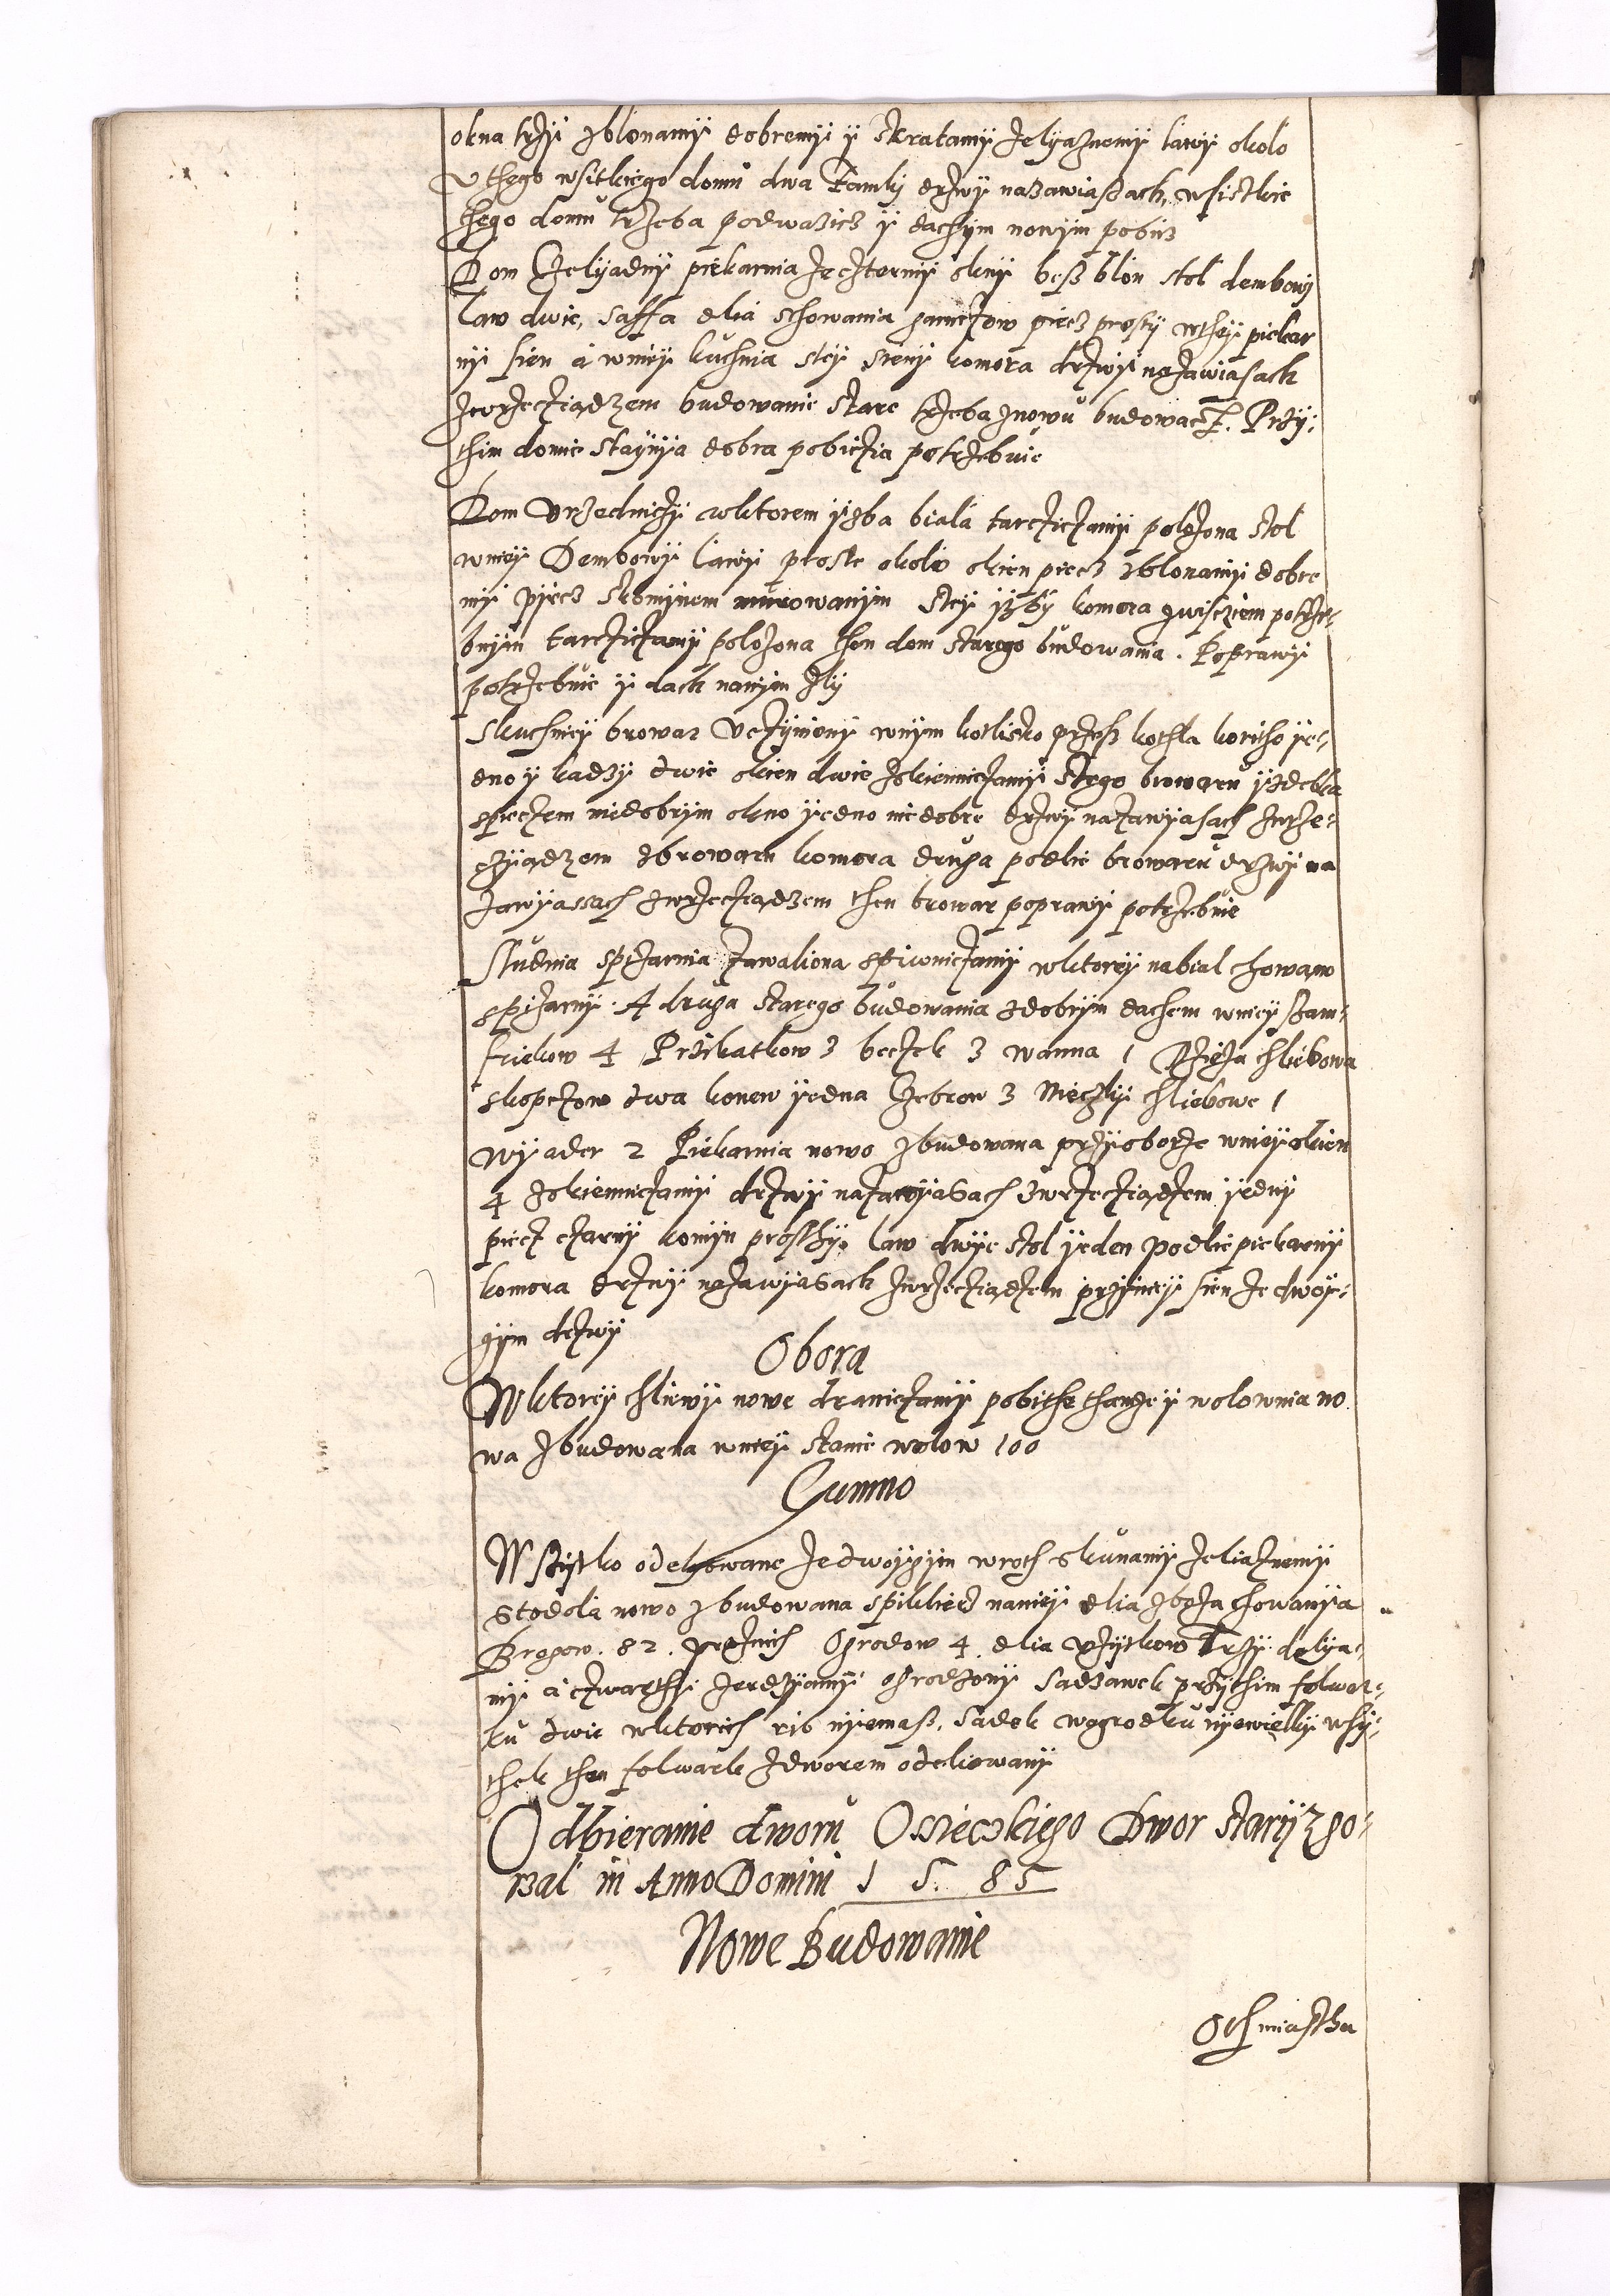 okna trzÿ zblonamÿ dobremÿ ÿ skratamÿ zelyaznemÿ lawÿ okolo
v thego wsitkiego domu dwa drzwÿ nazawiasach, wsistkie
thego domu trzeba podwazicz ÿ dachÿm nowÿm pobicz
Dom Czelyadnÿ piekarnia ze cztermÿ oknÿ besz blon stol dembowÿ
law dwie, saffa dlia schowania garnczow piecz prostÿ wtheÿ piekar
nÿ sien a wnieÿ kuchnia steÿ sienÿ komora drzwÿ nazawiasach
zwrzecziadzem budowanie stare trzeba znowu budowacz. Przÿ:
thim domie staÿnÿa dobra pobiczia potrzebuie
Dom Vrzedniczÿ wktorem ÿzba biala tarcziczamÿ polozona stol
wnieÿ Dembowÿ lawÿ proste okolo okien piecz zblonamÿ dobre
mÿ pÿecz skominem murowanÿm steÿ ÿzbÿ komora potrze:
bnÿm tarcziczamÿ polozona then dom starego budowania. Poprawÿ
potrzebuie ÿ dach nanÿm zlÿ
Skuchnieÿ browar vczÿnionÿ wnÿm kotlisko przesz kothla koritho ÿe:
dno ÿ kadzÿ dwie okien dwie zokiennicamÿ stego browaru ÿzdebka
spieczem niedobrÿm okno ÿedno niedobre drzwÿ nazawÿasach zwrze:
czÿadzem zbrowaru komora druga podlie browaru drzwÿ na
zawÿassach zwrzecziadzem then browar poprawÿ potrzebuie
Studnia spizarnia zawaliona spiwniczamÿ wktoreÿ nabial chowano
spizarnÿ. A druga starego budowania zdobrÿm dachem wnieÿ
4 3 beczek 3 wanna 1 Dzieza chliebowa
skopczow dwa konew ÿedna Czebrow 3 Nieczkÿ chliebowe 1
Wÿader 2 Piekarnia nowo zbudowana przÿoborze wnieÿ okien
4 zokiennicamÿ drzwÿ nazawÿasach zwrzecziadzem ÿednÿ
piecz czarnÿ komÿn prosthÿ. law dwÿe stol ÿeden podlie piekarnÿ
komora drzwÿ nazawÿasach zwrzecziadzem przÿnieÿ sien ze dwoÿ:
gÿm drzwÿ
Obora
Wktoreÿ chliewÿ nowe draniczamÿ pobithe thamze ÿ wolownia no
wa zbudowana wnieÿ stanie wolow 100
Gumno
Wszÿstko odelhowane ze dwoÿgÿm wroth skunamÿ zeliaznemÿ
Stodola nowo zbudowana spiklierz nanieÿ dlia zboza chowanÿa
Brogow. 82. proznich Ogrodow 4. dlia vzÿtkow Trzÿ delÿa:
mÿ a czwarthÿ zerdzÿamÿ ogrodzonÿ Sadzawek przÿthim folwar:
ku dwie wktorich rib nÿemasz. Sadek wogrodku nÿewielkÿ wsÿ:
thek then folwark zdworem odeliowanÿ
Odbieranie dworu Ossieczkiego Dwor starÿ zgo:
rzal in Anno Domini 1 5. 85
Nowe Budowanie
Och miasthu